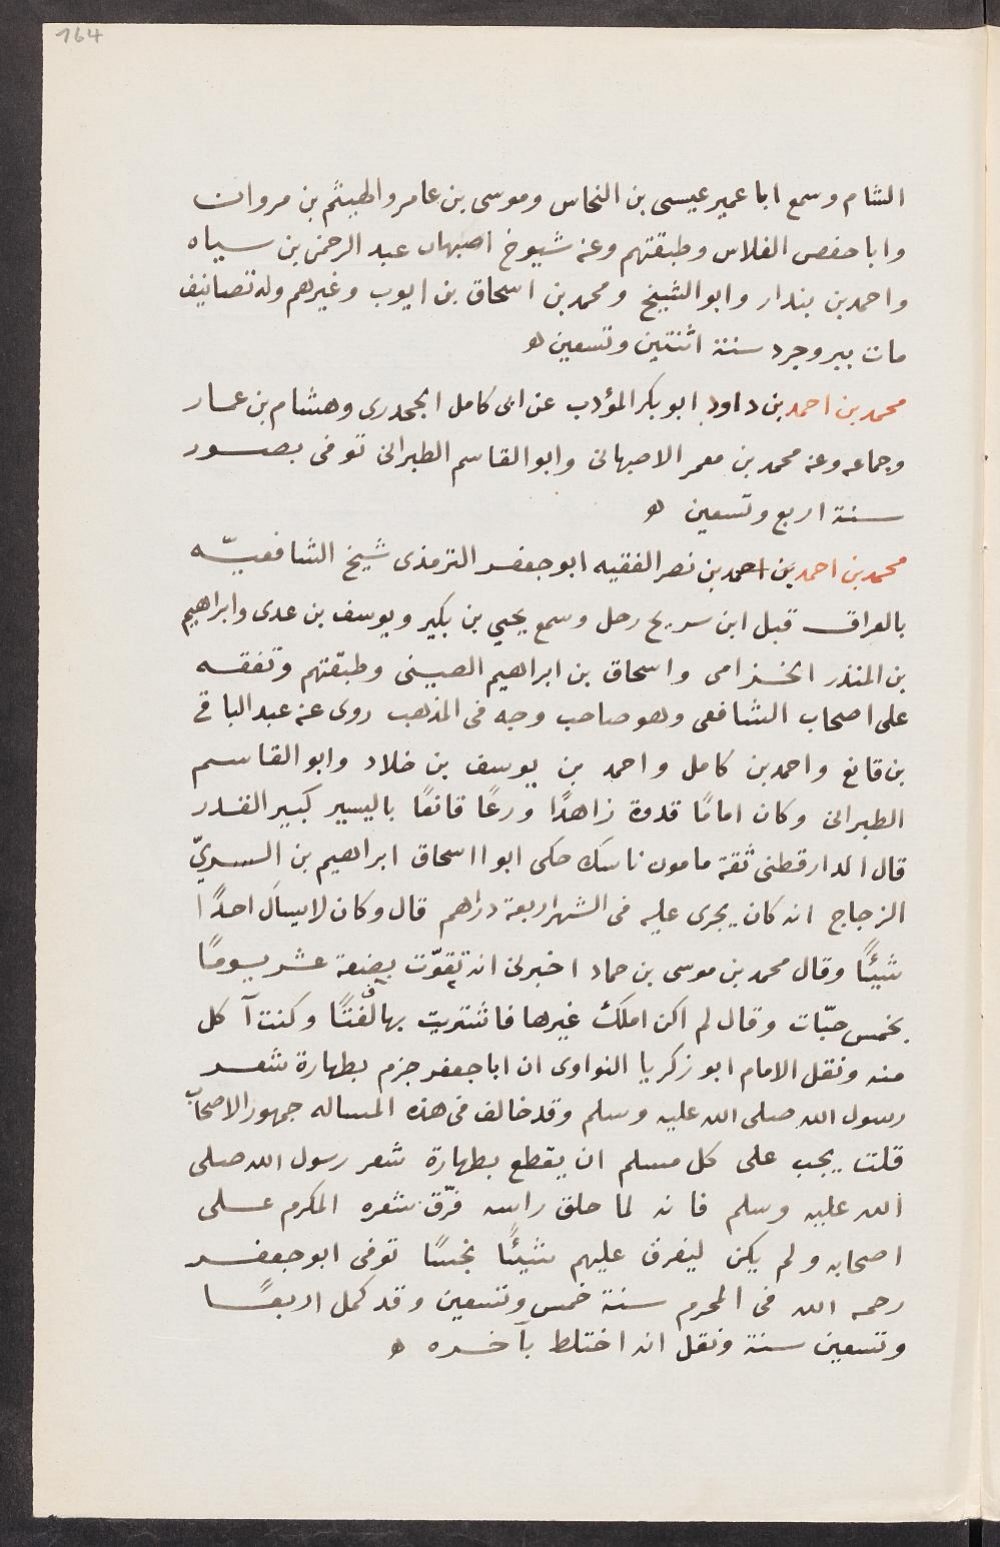 164
الشام وسمع ابا عمير عيسى بن النحاس وموسى بن عامر والهيثم بن مروان
وابا حفص الفلاس وطبقتهم وعنه شيوخ اصبهان عبد الرحمن بن سياه
واحمد بن بندار وابو الشيخ ومحمد بن اسحاق بن ايوب وغيرهم وله تصانيف
مات ببروجرد سنة اثنتين وتسعين ه
محمد بن احمد بن داود ابو بكر المؤدب عن ابى كامل الجحدرى وهشام بن عمار
وجماعه وعنه محمد بن معمر الاصبهانى وابو القاسم الطبرانى توفى بصور
سنة اربع وتسعين ه
محمد بن احمد بن احمد بن نصر الفقيه ابو جعفر الترمذى شيخ الشافعيّه
بالعراق قبل ابن سريج رحل وسمع يحيي بن بكير ويوسف بن عدى وابراهيم
بن المنذر الخزامى واسحاق بن ابراهيم الصينى وطبقتهم وتفقه
على اصحاب الشافعى وهو صاحب وجه فى المذهب روى عنه عبد الباقى
بن قانع واحمد بن كامل واحمد بن يوسف بن خلاد وابو القاسم
الطبرانى وكان امامًا قدوة زاهدًا ورعًا قانعًا باليسير كبير القدر
قال الدارقطنى ثقة مامون ناسك حكى ابو ااسحاق ابراهيم بن السريّ
الزجاج انه كان يجرى عليه فى الشهر اربعة دراهم قال وكان لا يسأل احدًا
شيئًا وقال محمد بن موسى بن حماد اخبرنى انه تقوّت بضعة عشر يومًا
بخمس حبّات وقال لم اكن املك غيرها فاشتريت بها لفتًا وكنت آكل
منه ونقل الامام ابو زكريا النواوى ان ابا جعفر جزم بطهارة شعر
رسول الله صلى الله عليه وسلم وقد خالف فى هذه المساله جمهور الاصحاب
قلت يجب على كل مسلم ان يقطع بطهارة شعر رسول الله صلى
الله عليه وسلم فانه لما حلق راسه فرّق شعره المكرم على
اصحابه ولم يكن ليفرق عليهم شيئًا نجسًا توفى ابو جعفر
رحمه الله فى المحرم سنة خمس وتسعين وقد كمل اربعًا
وتسعين سنة ونقل انه اختلط بآخره ه